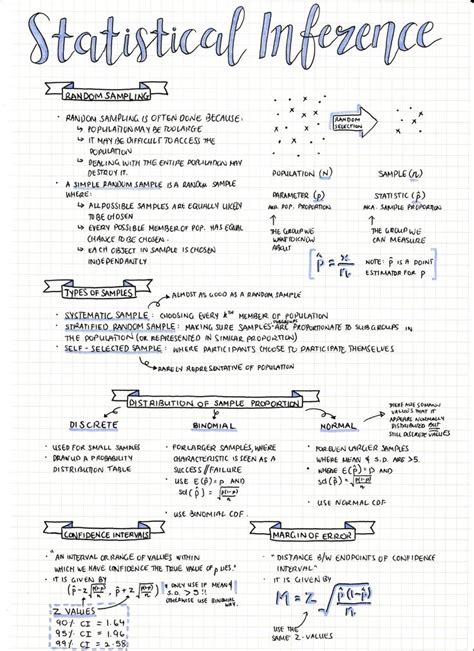 Statistical Inference
RANDOM SAMPLING
• RANDOM SAMPLING IS OFTEN DONE BECAUSE:
↳ POPULATION MAY BE TOO LARGE
↳ IT MAY BE DIFFICULT TO ACCESS THE
POPULATION
↳ DEALING WITH THE ENTIRE POPULATION MAY
DESTROY IT.
• A SIMPLE RANDOM SAMPLE IS A RANDOM SAMPLE
WHERE:
↳ ALL POSSIBLE SAMPLES ARE EQUALLY LIKELY
TO BE CHOSEN
↳ EVERY POSSIBLE MEMBER OF POP. HAS EQUAL
CHANCE TO BE CHOSEN.
↳ EACH OBJECT IN SAMPLE IS CHOSEN
INDEPENDANTLY
RANDOM
SELECTION
POPULATION (N)
SAMPLE (n)
PARAMETER (p)
AKA. POP. PROPORTION
STATISTIC (p̂)
AKA. SAMPLE PROPORTION
THE GROUP WE
WANT TO KNOW
ABOUT
THE GROUP WE
CAN MEASURE
p̂ = x/n
NOTE: p̂ IS A POINT
ESTIMATOR FOR p
TYPES OF SAMPLES
ALMOST AS GOOD AS A RANDOM SAMPLE
• SYSTEMATIC SAMPLE: CHOOSING EVERY kTH MEMBER OF POPULATION
• STRATIFIED RANDOM SAMPLE: MAKING SURE SAMPLES ARE PROPORTIONATE TO SUBGROUPS IN
THE POPULATION (OR REPRESENTED IN SIMILAR PROPORTION)
• SELF-SELECTED SAMPLE: WHERE PARTICIPANTS CHOOSE TO PARTICIPATE THEMSELVES
RARELY REPRESENTATIVE OF POPULATION
DISTRIBUTION OF SAMPLE PROPORTION
DISCRETE
• USED FOR SMALL SAMPLES
• DRAW UP A PROBABILITY
DISTRIBUTION TABLE
BINOMIAL
• FOR LARGER SAMPLES, WHERE
CHARACTERISTIC IS SEEN AS A
SUCCESS//FAILURE
• USE E(p̂) = p AND
sd(p̂) = √(p(1-p)/n)
• USE BINOMIAL CDF.
NORMAL
THERE ARE SO MANY
VALUES THAT IT
APPEARS NORMALLY
DISTRIBUTED BUT
STILL DISCRETE VALUES
• FOR EVEN LARGER SAMPLES
WHERE MEAN & S.D. ARE >5.
• WHERE E(p̂) = p AND
sd(p̂) = √(p(1-p)/n)
• USE NORMAL CDF
CONFIDENCE INTERVALS
• "AN INTERVAL OR RANGE OF VALUES WITHIN
WHICH WE HAVE CONFIDENCE THE TRUE VALUE OF p LIES."
• IT IS GIVEN BY
(p̂ - z√(p̂(1-p̂)/n), p̂ + z√(p̂(1-p̂)/n))
* ONLY USE IF MEAN &
S.D. > 5 !!
OTHERWISE USE BINOMIAL
WAY.
Z VALUES
90% CI = 1.64
95% CI = 1.96
99% CI = 2.58
MARGIN OF ERROR
• "DISTANCE B/W ENDPOINTS OF CONFIDENCE
INTERVAL"
• IT IS GIVEN BY
M = Z √(p̂(1-p̂)/n)
USE THE
SAME Z-VALUES